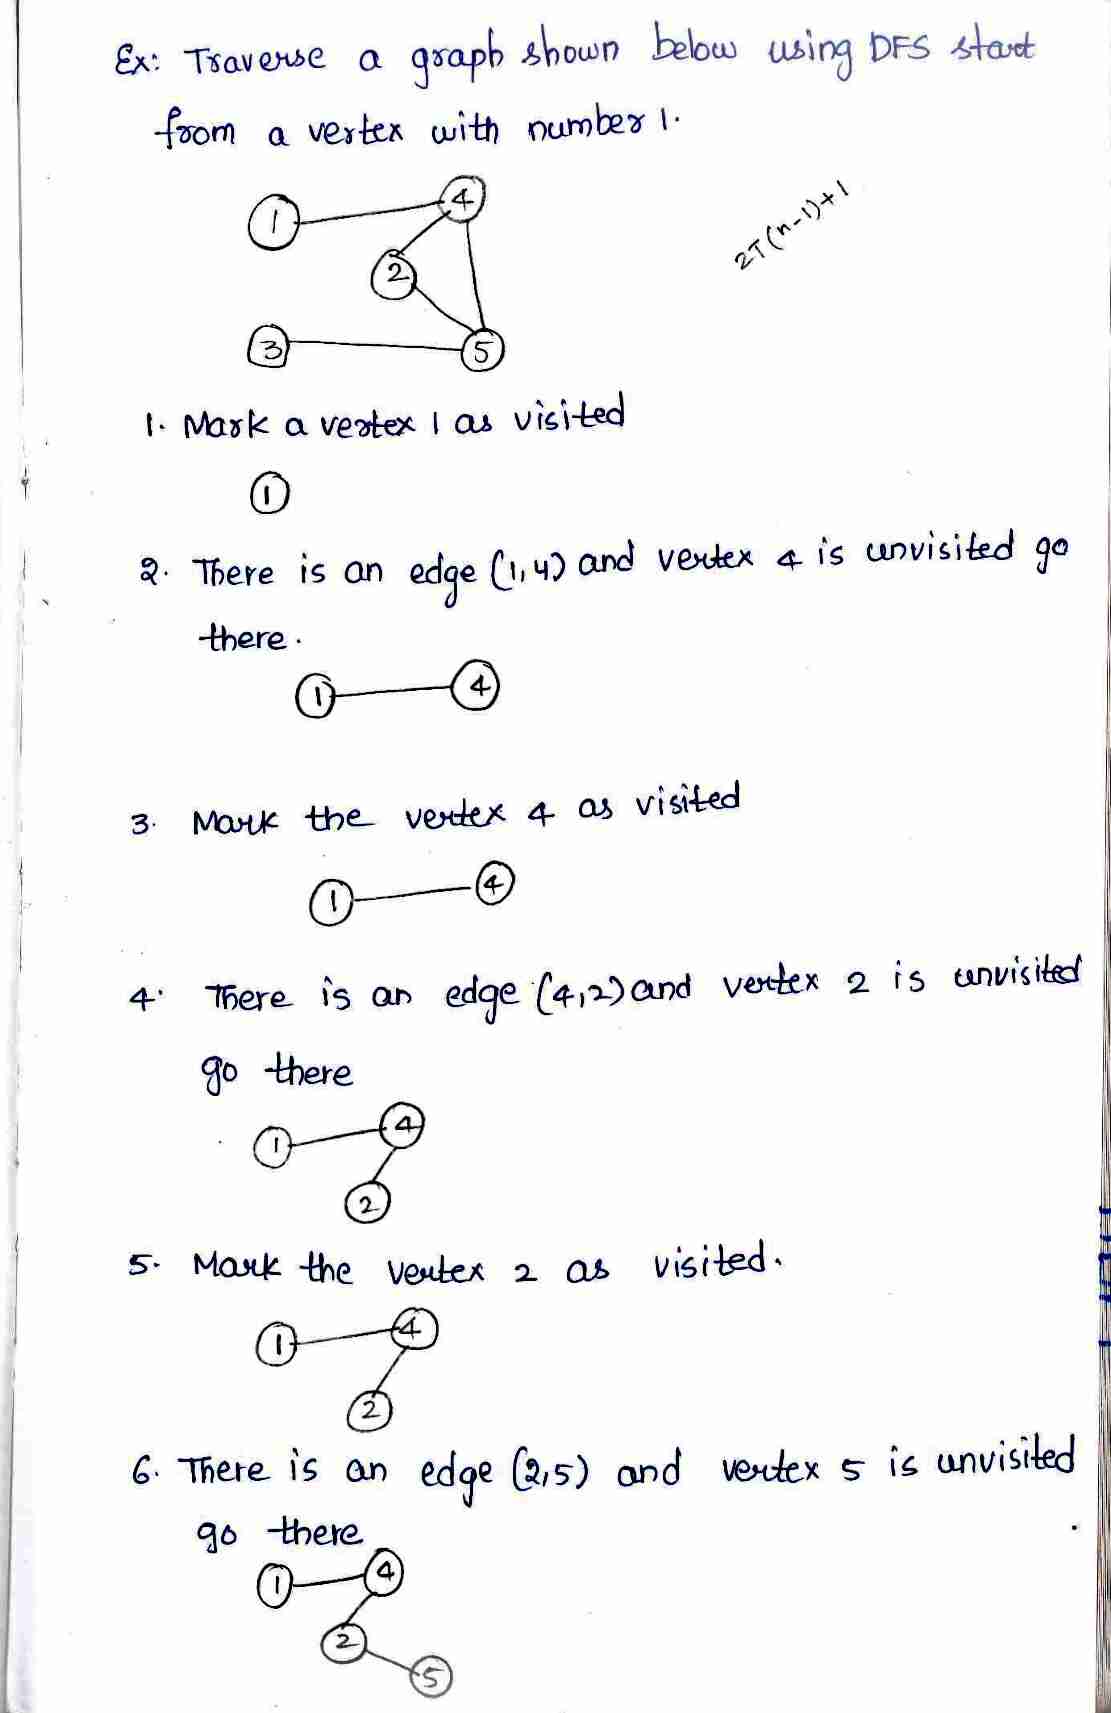 Ex: Traverse a graph shown below using DFS start
from a vertex with number 1.
1 4
2T(n-1)+1
2
3 5
1. Mark a vertex 1 as visited
1
2. There is an edge (1,4) and vertex 4 is unvisited go
there.
1 4
3. Mark the vertex 4 as visited
1 4
4. There is an edge (4,2) and vertex 2 is unvisited
go there
1 4
2
5. Mark the vertex 2 as visited.
1 4
2
6. There is an edge (2,5) and vertex 5 is unvisited
go there
1 4
2
5